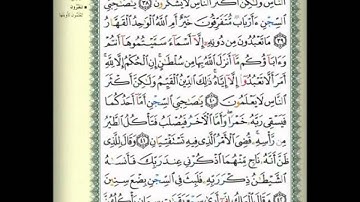 النَّاسِ وَلَٰكِنَّ أَكْثَرَ النَّاسِ لَا يَشْكُرُونَ ﴿٣٨﴾ يَٰصَٰحِبَىِ
السِّجْنِ ءَأَرْبَابٌ مُّتَفَرِّقُونَ خَيْرٌ أَمِ اللَّهُ الْوَٰحِدُ الْقَهَّارُ
﴿٣٩﴾ مَا تَعْبُدُونَ مِن دُونِهِۦٓ إِلَّآ أَسْمَآءً سَمَّيْتُمُوهَآ أَنتُمْ
وَءَابَآؤُكُم مَّآ أَنزَلَ اللَّهُ بِهَا مِن سُلْطَٰنٍ إِنِ الْحُكْمُ إِلَّا
لِلَّهِ أَمَرَ أَلَّا تَعْبُدُوٓا۟ إِلَّآ إِيَّاهُ ذَٰلِكَ الدِّينُ الْقَيِّمُ وَلَٰكِنَّ أَكْثَرَ
النَّاسِ لَا يَعْلَمُونَ ﴿٤٠﴾ يَٰصَٰحِبَىِ السِّجْنِ أَمَّآ أَحَدُكُمَا
فَيَسْقِى رَبَّهُۥ خَمْرًا وَأَمَّا الْءَاخَرُ فَيُصْلَبُ فَتَأْكُلُ الطَّيْرُ
مِن رَّأْسِهِۦ قُضِىَ الْأَمْرُ الَّذِى فِيهِ تَسْتَفْتِيَانِ ﴿٤١﴾ وَقَالَ لِلَّذِى
ظَنَّ أَنَّهُۥ نَاجٍ مِّنْهُمَا اذْكُرْنِى عِندَ رَبِّكَ فَأَنسَىٰهُ
الشَّيْطَٰنُ ذِكْرَ رَبِّهِۦ فَلَبِثَ فِى السِّجْنِ بِضْعَ سِنِينَ
﴿٤٢﴾ وَقَالَ الْمَلِكُ إِنِّىٓ أَرَىٰ سَبْعَ بَقَرَٰتٍ سِمَانٍ يَأْكُلُهُنَّ